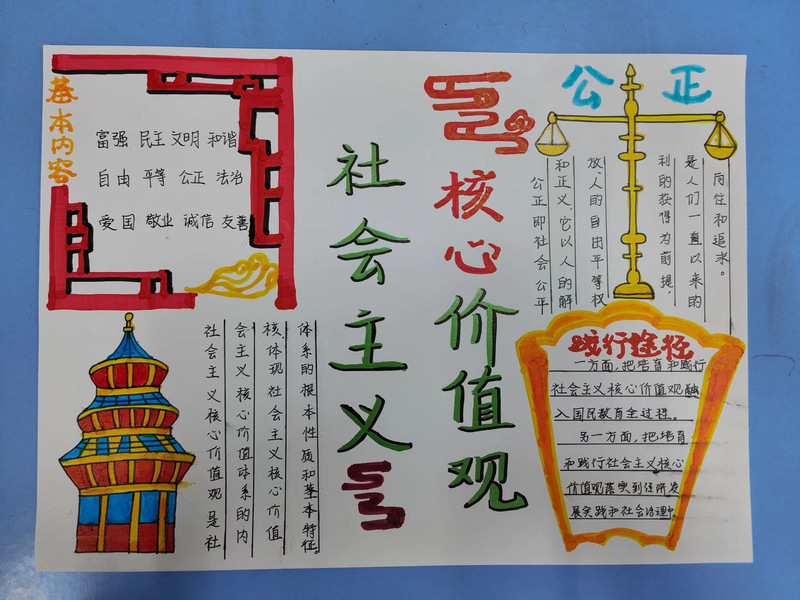 基本内容
富强 民主 文明 和谐
自由 平等 公正 法治
爱国 敬业 诚信 友善
社会主义
核心价值观
公正
公正即社会公平
和正义,它以人的解
放、人的自由平等权
利的获得为前提,
是人们一直以来的
向往和追求。
社会主义核心价值观是社
会主义核心价值体系的内
核,体现社会主义核心价值
体系的根本性质和基本特征。
践行途径
一方面,把培育和践行
社会主义核心价值观融
入国民教育全过程。
另一方面,把培育
和践行社会主义核心
价值观落实到经济发
展实践和社会治理中